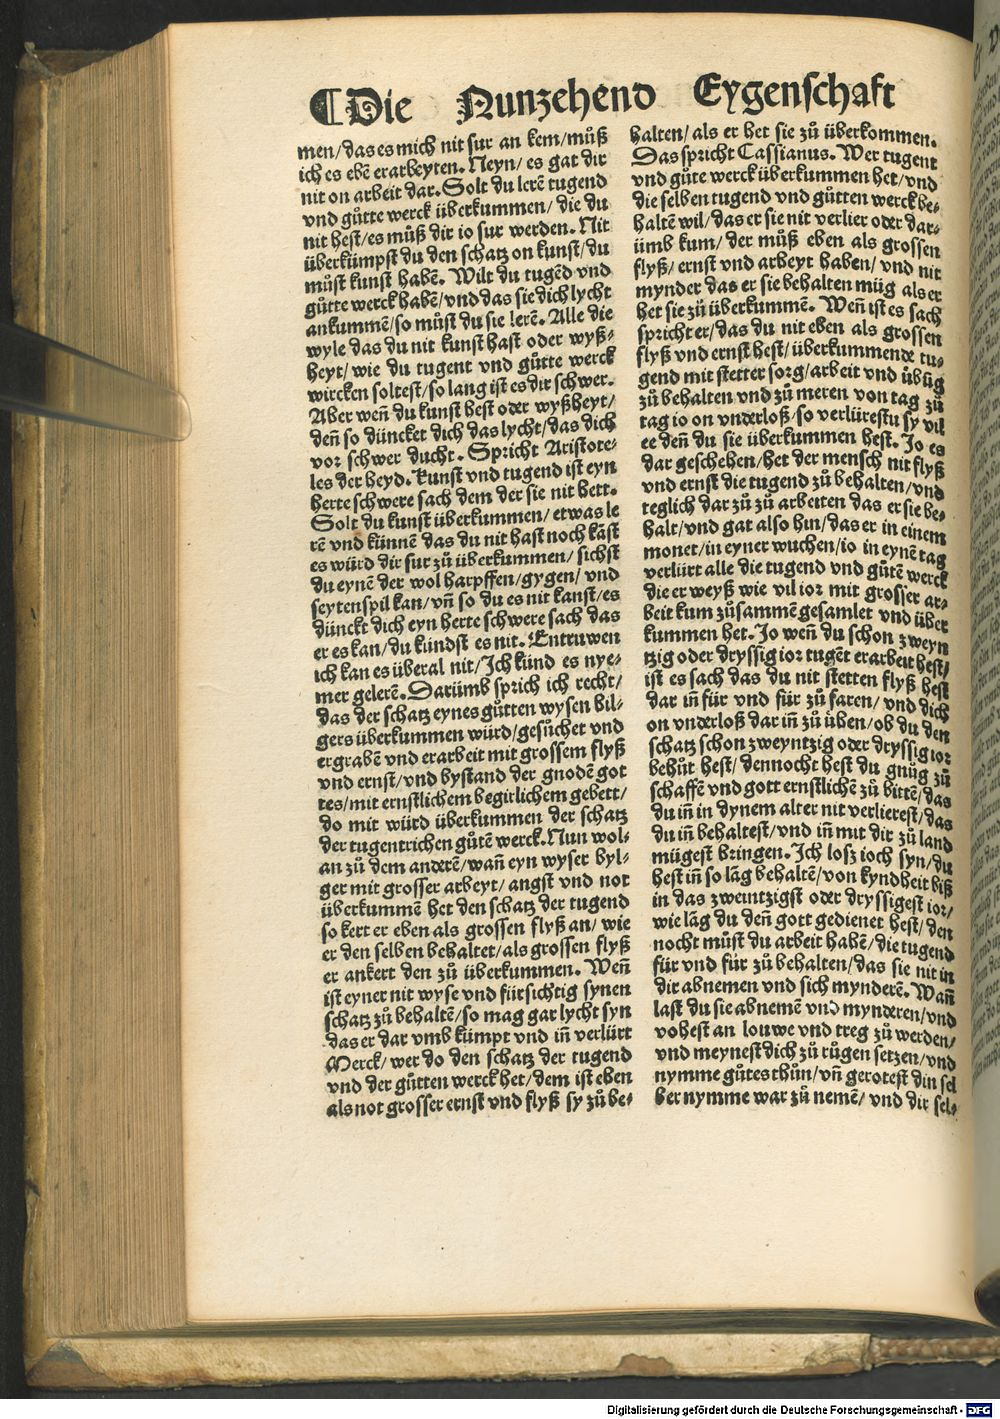 ¶Die Nunzehend Eygenschaft
men/das es mich nit sur an kem/müß
ich es ebē erarbeyten. Neyn/ es gat dir
nit on arbeit dar. Solt du lerē tugend
vnd gůtte werck überkummen/ die du
nit hest/es můß dir io sur werden. Nit
überkümpst du den schatz on kunst/du
můst kunst habē. Wilt du tugēd vnd
gůtte werck habē/vnd das sie dich lycht
ankummē/so můst du sie lerē. Alle die
wyle das du nit kunst hast oder wyß⸗
heyt/wie du tugent vnd gůtte werck
wircken soltest/so lang ist es dir schwer.
Aber weñ du kunst hest oder wyßheyt/
deñ so düncket dich das lycht/das dich
vor schwer ducht. Spricht Aristote⸗
les der heyd. Kunst vnd tugend ist eyn
herte schwere sach dem der sie nit hett.
Solt du kunst überkummen/etwas le
rē vnd künnē das du nit hast noch kāst
es würd dir sur zů überkummen/ sichst
du eynē der wol harpffen/gygen/ vnd
seytenspil kan/vñ so du es nit kanst/es
dünckt dich eyn herte schwere sach das
er es kan/du kündst es nit. Entruwen
ich kan es überal nit/Ich künd es nye⸗
mer gelerē. Darümb sprich ich recht/
das der schatz eynes gůtten wysen bil⸗
gers überkummen würd/gesůchet vnd
ergrabē vnd erarbeit mit grossem flyß
vnd ernst/vnd bystand der gnodē got
tes/mit ernstlichem begirlichem gebett/
do mit würd überkummen der schatz
der tugentrichen gůtē werck. Nun wol⸗
an zů dem anderē/wañ eyn wyser byl⸗
ger mit grosser arbeyt/angst vnd not
überkummē het den schatz der tugend
so kert er eben als grossen flyß an/ wie
er den selben behaltet/als grossen flyß
er ankert den zů überkummen. Weñ
ist eyner nit wyse vnd fürsichtig synen
schatz zů behaltē/so mag gar lycht syn
das er dar vmb kümpt vnd iñ verlürt
Merck/wer do den schatz der tugend
vnd der gůtten werck het/dem ist eben
als not grosser ernst vnd flyß sy zů be⸗
halten/als er het sie zů überkommen.
Das spricht Cassianus. Wer tugent
vnd gůte werck überkummen het/vnd
die selben tugend vnd gůtten werck be⸗
haltē wil/das er sie nit verlier oder dar⸗
ümb kum/der můß eben als grossen
flyß/ernst vnd arbeyt haben/vnd nit
mynder das er sie behalten müg als er
het sie zů überkummē. Weñ ist es sach
spricht er/das du nit eben als grossen
flyß vnd ernst hest/überkummende tu⸗
gend mit stetter sorg/arbeit vnd ůbūg
zů behalten vnd zů meren von tag zů
tag io on vnderloß/so verlürestu sy vil
ee deñ du sie überkummen hest. Jo es
dar geschehen/het der mensch nit flyß
vnd ernst die tugend zů behalten/vnd
teglich dar zů zů arbeiten das er sie be⸗
halt/vnd gat also hin/das er in einem
monet/in eyner wuchen/io in eynē tag
verlürt alle die tugend vnd gůtē werck
die er weyß wie vil ior mit grosser ar⸗
beit kum zůsammē gesamlet vnd über
kummen het. Jo weñ du schon zweyn
tzig oder dryssig ior tugēt erarbeit hest/
ist es sach das du nit stetten flyß hest
dar iñ für vnd für zů faren/ vnd dich
on vnderloß dar iñ zů üben/ob du den
schatz schon zweyntzig oder dryssig ior
behůt hest/dennocht hest du gnůg zů
schaffē vnd gott ernstlichē zů bittē/das
du iñ in dynem alter nit verlierest/das
du iñ behaltest/vnd iñ mit dir zů land
mügest bringen. Ich losz ioch syn/du
hest iñ so lāg behaltē/von kyndheit biß
in das zweintzigst oder dryssigest ior/
wie lāg du deñ gott gedienet hest/den
nocht můst du arbeit habē/die tugend
für vnd für zů behalten/das sie nit in
dir abnemen vnd sich mynderē. Wañ
last du sie abnemē vnd mynderen/vnd
vohest an louwe vnd treg zů werden/
vnd meynest dich zů růgen setzen/vnd
nymme gůtes thůn/vñ gerotest din sel
ber nymme war zů nemē/ vnd dir sel⸗
Digitalisierung gefördert durch die Deutsche Forschungsgemeinschaft - DFG